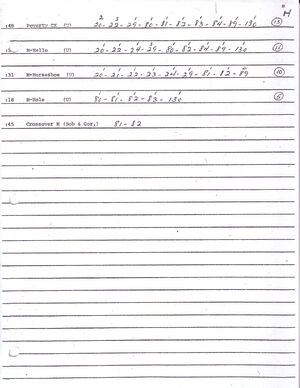 "H
2 3 1 1 1 1 1 1 1 1
:48 Poverty CK (U) 20 - 22 - 29 - 80 - 81 - 82 - 83 - 84 - 89 - 130 (13)
M-Hello (U) 20 - 22 - 24 - 29 - 80 - 82 - 84 - 89 - 130 (11)
:31 M-Horseshoe (U) 20 - 21 - 22 - 23 - 24 - 29 - 81 - 82 - 89 (10)
:18 M-Hole (U) 80 - 81 - 82 - 83 - 130 (5)
:45 Crossover M (Bob & Gor.) 81 - 82